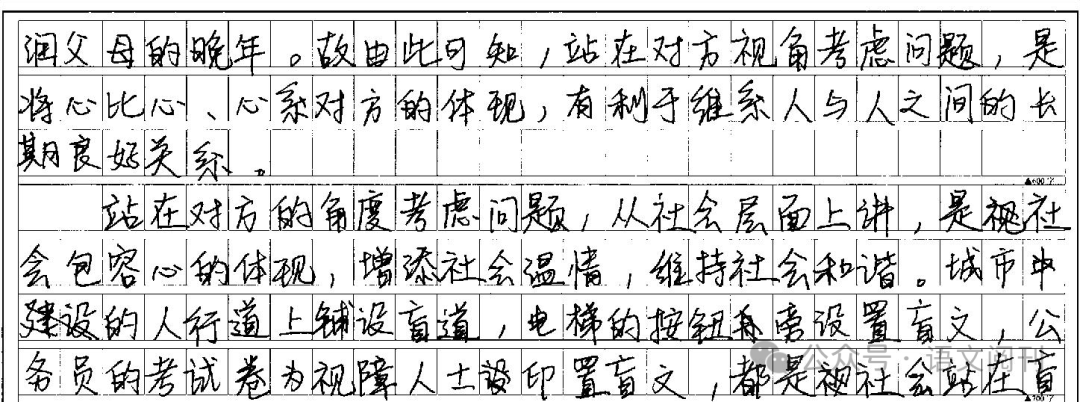 润父母的晚年。故由此可知，站在对方视角考虑问题，是
将心比心、心系对方的体现，有利于维系人与人之间的长
期良好关系。
▲600字
站在对方的角度考虑问题，从社会层面上讲，是视社
会包容心的体现，增添社会温情，维持社会和谐。城市中
建设的人行道上铺设盲道，电梯的按钮旁设置盲文，公
务员的考试卷为视障人士设印置盲文，都是视社会站在盲
公众号·语文阅刊
▲700字